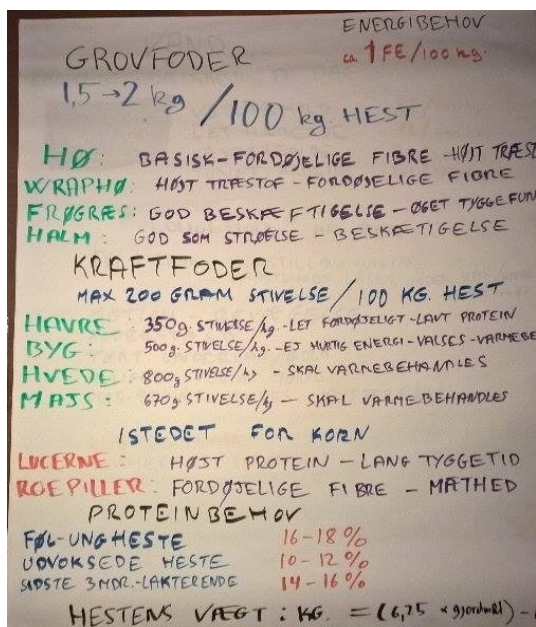 ENERGIBEHOV
ca. 1 FE/100 kg.
GROVFODER
1,5→2 kg /100 kg HEST
HØ: BASISK-FORDØJELIGE FIBRE-HØJT TRÆST
WRAPHØ: HØJT TRÆSTOF-FORDØJELIGE FIBRE
FRØGRÆS: GOD BESKÆFTIGELSE-ØGET TYGGEFUN
HALM: GOD SOM STRØELSE-BESKÆTIGELSE
KRAFTFODER
MAX 200 GRAM STIVELSE/100 KG. HEST
HAVRE: 350g. STIVELSE/kg-LET FORDØJELIGT-LAVT PROTEIN
BYG: 500g. STIVELSE/kg.-EJ HURTIG ENERGI-VALSES-VARMEBE
HVEDE: 800g STIVELSE/kg - SKAL VARMEBEHANDLES
MAJS: 670g. STIVELSE/kg - SKAL VARMEBEHANDLES
ISTEDET FOR KORN
LUCERNE: HØJT PROTEIN-LANG TYGGETID
ROEPILLER: FORDØJELIGE FIBRE - MÆTHED
PROTEINBEHOV
FØL-UNGHESTE 16-18%
UDVOKSEDE HESTE 10-12%
SIDSTE 3MDR.-LAKTERENDE 14-16%
HESTENS VÆGT: KG. = (6,25 × gjordmål) -